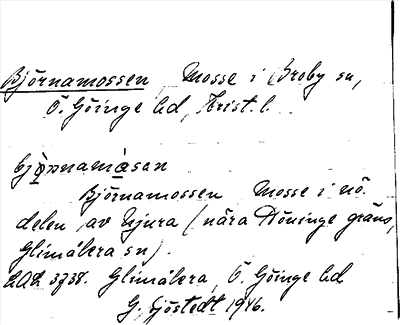 Björnamossen Mosse i Broby sn,
Ö. Göinge hd, Krist. l.
bjö̱rnamå̱san
Björnamossen Mosse i nö.
delen av (nära gräns,
Glimåkra sn).
LAL 3738. Glimåkra, Ö. Göinge hd
G. Sjöstedt 1946.